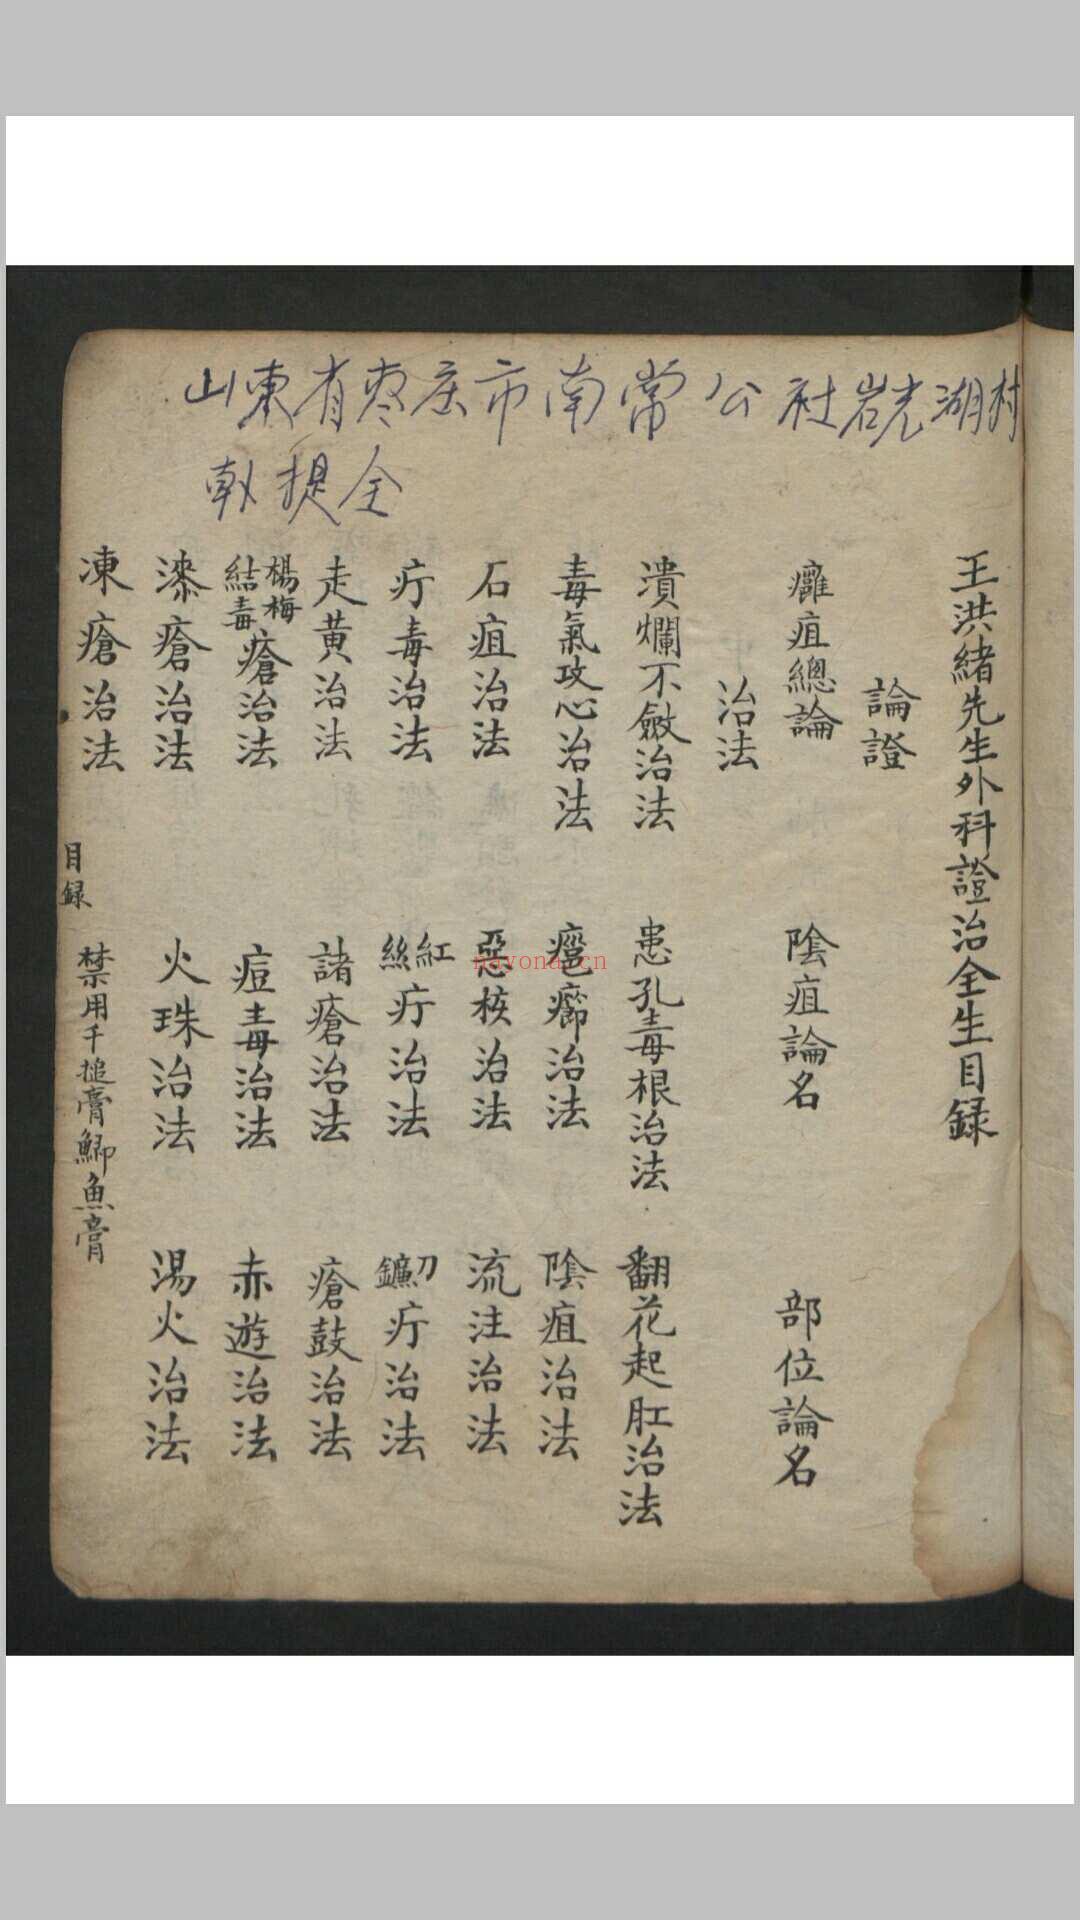 山東省枣庄市南常公社岩光湖村
韩提全
王洪緒先生外科證治全生目録
論證
癰疽總論 陰疽論名 部位論名
治法
潰爛不斂治法 患孔毒根治法 翻花起肛治法
毒氣攻心治法 瘂癤治法 陰疽治法
石疽治法 惡核治法 流注治法
疔毒治法 紅絲疔治法 刀鐮疔治法
走黄治法 諸瘡治法 瘡鼓治法
楊梅結毒瘡治法 痘毒治法 赤遊治法
漆瘡治法 火珠治法 湯火治法
凍瘡治法
目録 禁用千搥膏鯽魚膏
nayona.cn